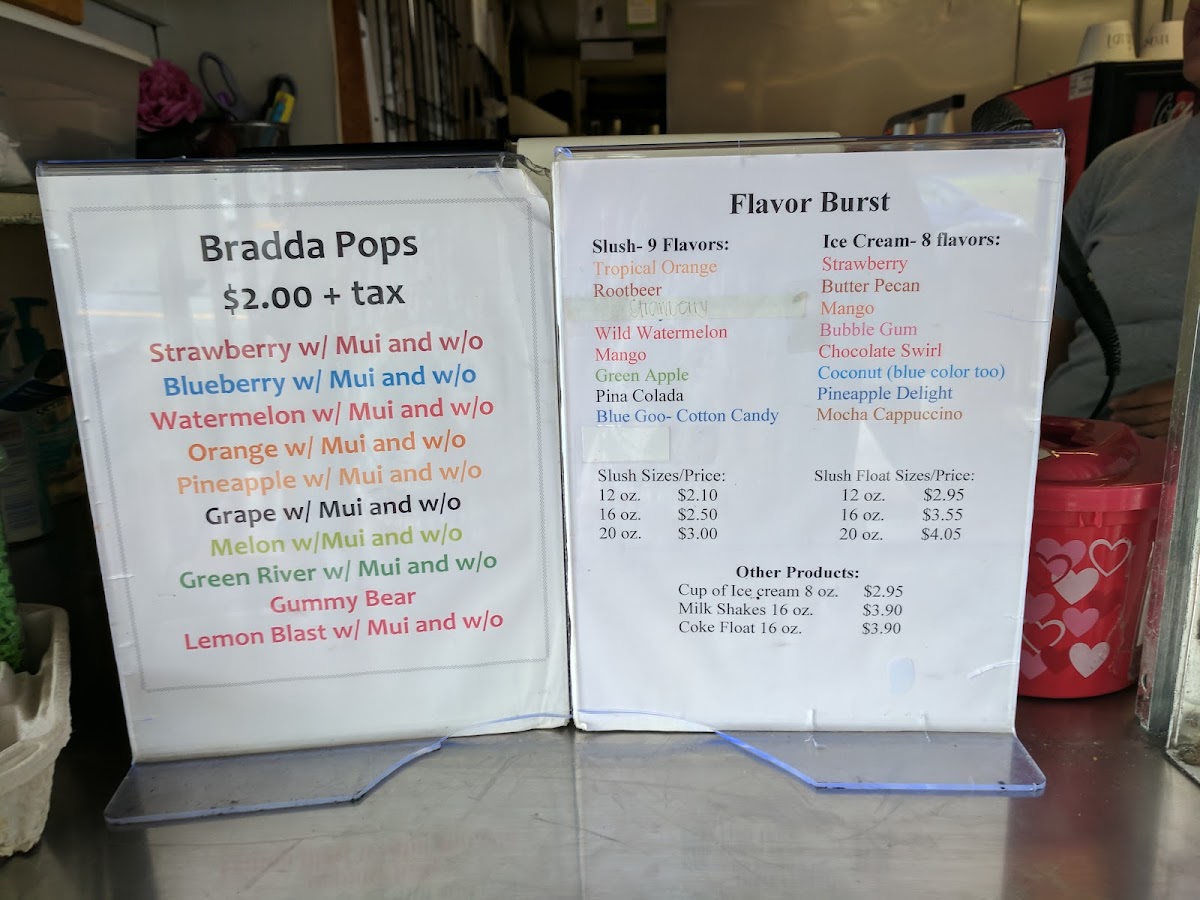 Bradda Pops
$2.00 + tax
Strawberry w/ Mui and w/o
Blueberry w/ Mui and w/o
Watermelon w/ Mui and w/o
Orange w/ Mui and w/o
Pineapple w/ Mui and w/o
Grape w/ Mui and w/o
Melon w/Mui and w/o
Green River w/ Mui and w/o
Gummy Bear
Lemon Blast w/ Mui and w/o
Flavor Burst
Slush- 9 Flavors:
Tropical Orange
Rootbeer
Strawberry
Wild Watermelon
Mango
Green Apple
Pina Colada
Blue Goo- Cotton Candy
Ice Cream- 8 flavors:
Strawberry
Butter Pecan
Mango
Bubble Gum
Chocolate Swirl
Coconut (blue color too)
Pineapple Delight
Mocha Cappuccino
Slush Sizes/Price:
12 oz. $2.10
16 oz. $2.50
20 oz. $3.00
Slush Float Sizes/Price:
12 oz. $2.95
16 oz. $3.55
20 oz. $4.05
Other Products:
Cup of Ice cream 8 oz. $2.95
Milk Shakes 16 oz. $3.90
Coke Float 16 oz. $3.90